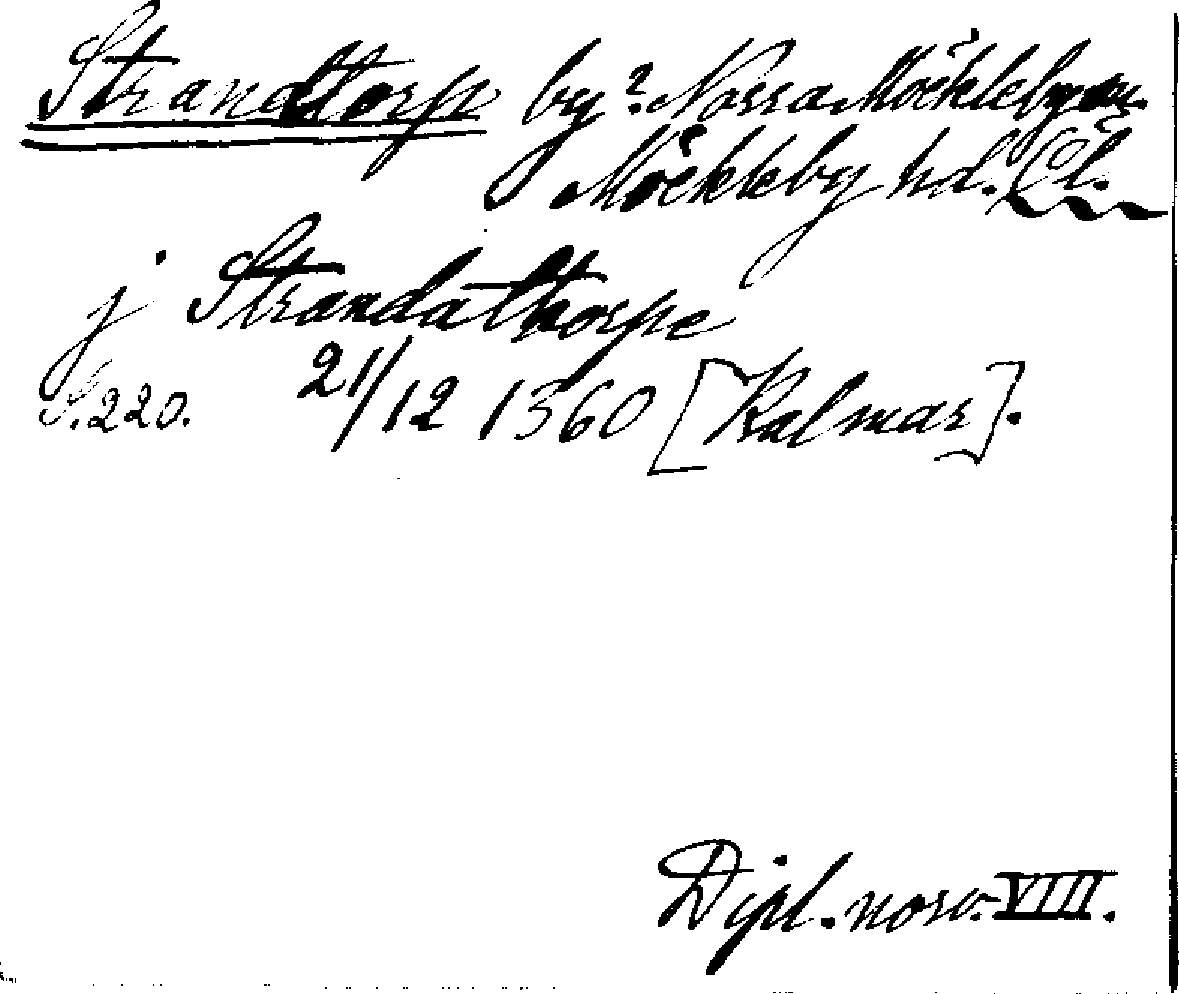 Strandtorp by? Norra Möckleby sn.
Möckleby hd. Öl.
j Strandathorpe
S. 220. 21/12 1360 [Kalmar].
Dipl. norv. VIII.